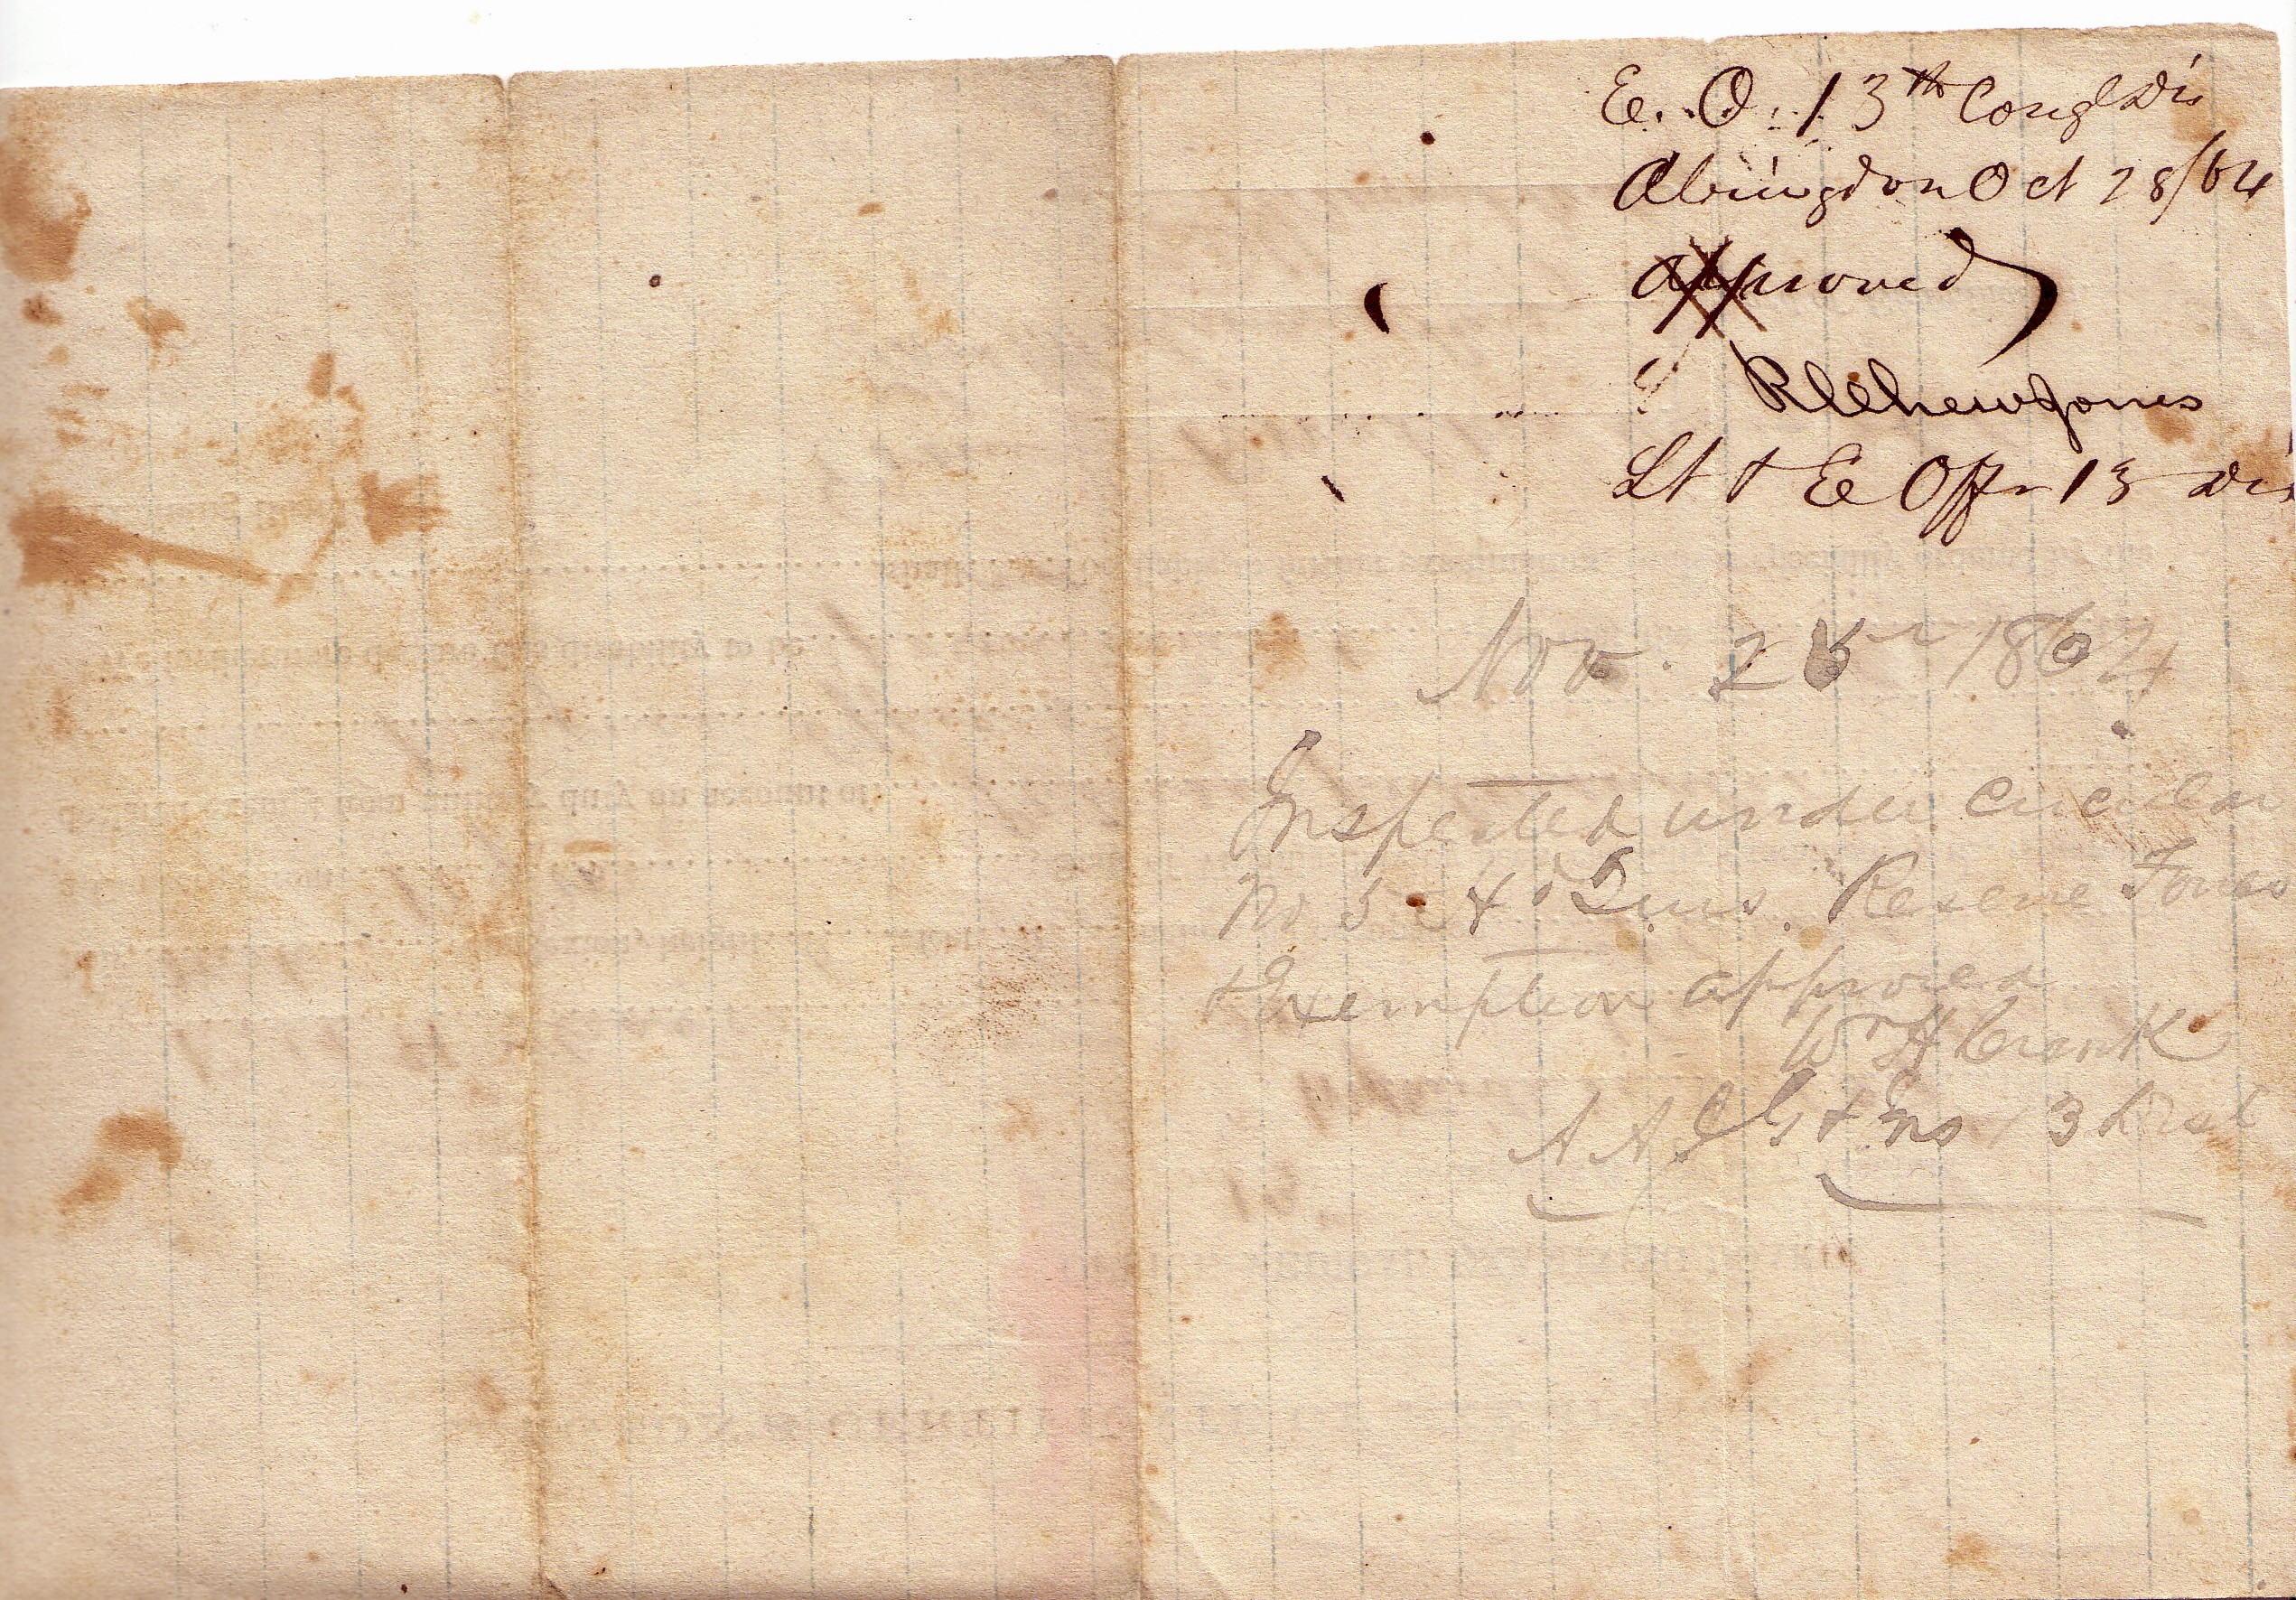 E. O. 13th Congl Dis
Abingdon Oct 28/64
approved
RCChewJones
Lt & E Offr 13 Dis
Nov. 25 1864
Inspected under circular
No 5 Qurs. Reserve Forces
& Exemption approved
Wm H Crank
A A I G & 13 Dist